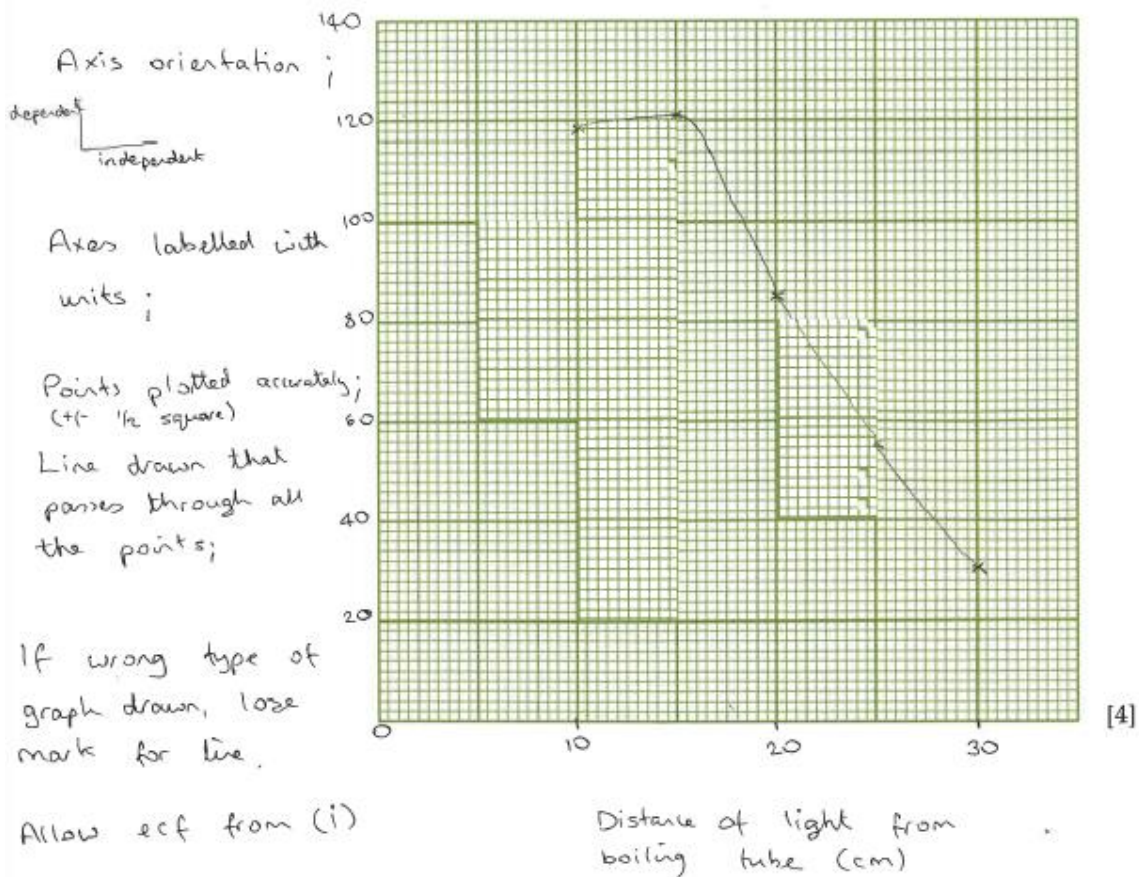 Axis orientation ;
dependent
independent
Axes labelled with
units ;
Points plotted accurately;
(+/- 1/2 square)
Line drawn that
passes through all
the points;
If wrong type of
graph drawn, lose
mark for line.
Allow ecf from (i)
140
120
100
80
60
40
20
0
10
20
30
[4]
Distance of light from
boiling tube (cm)